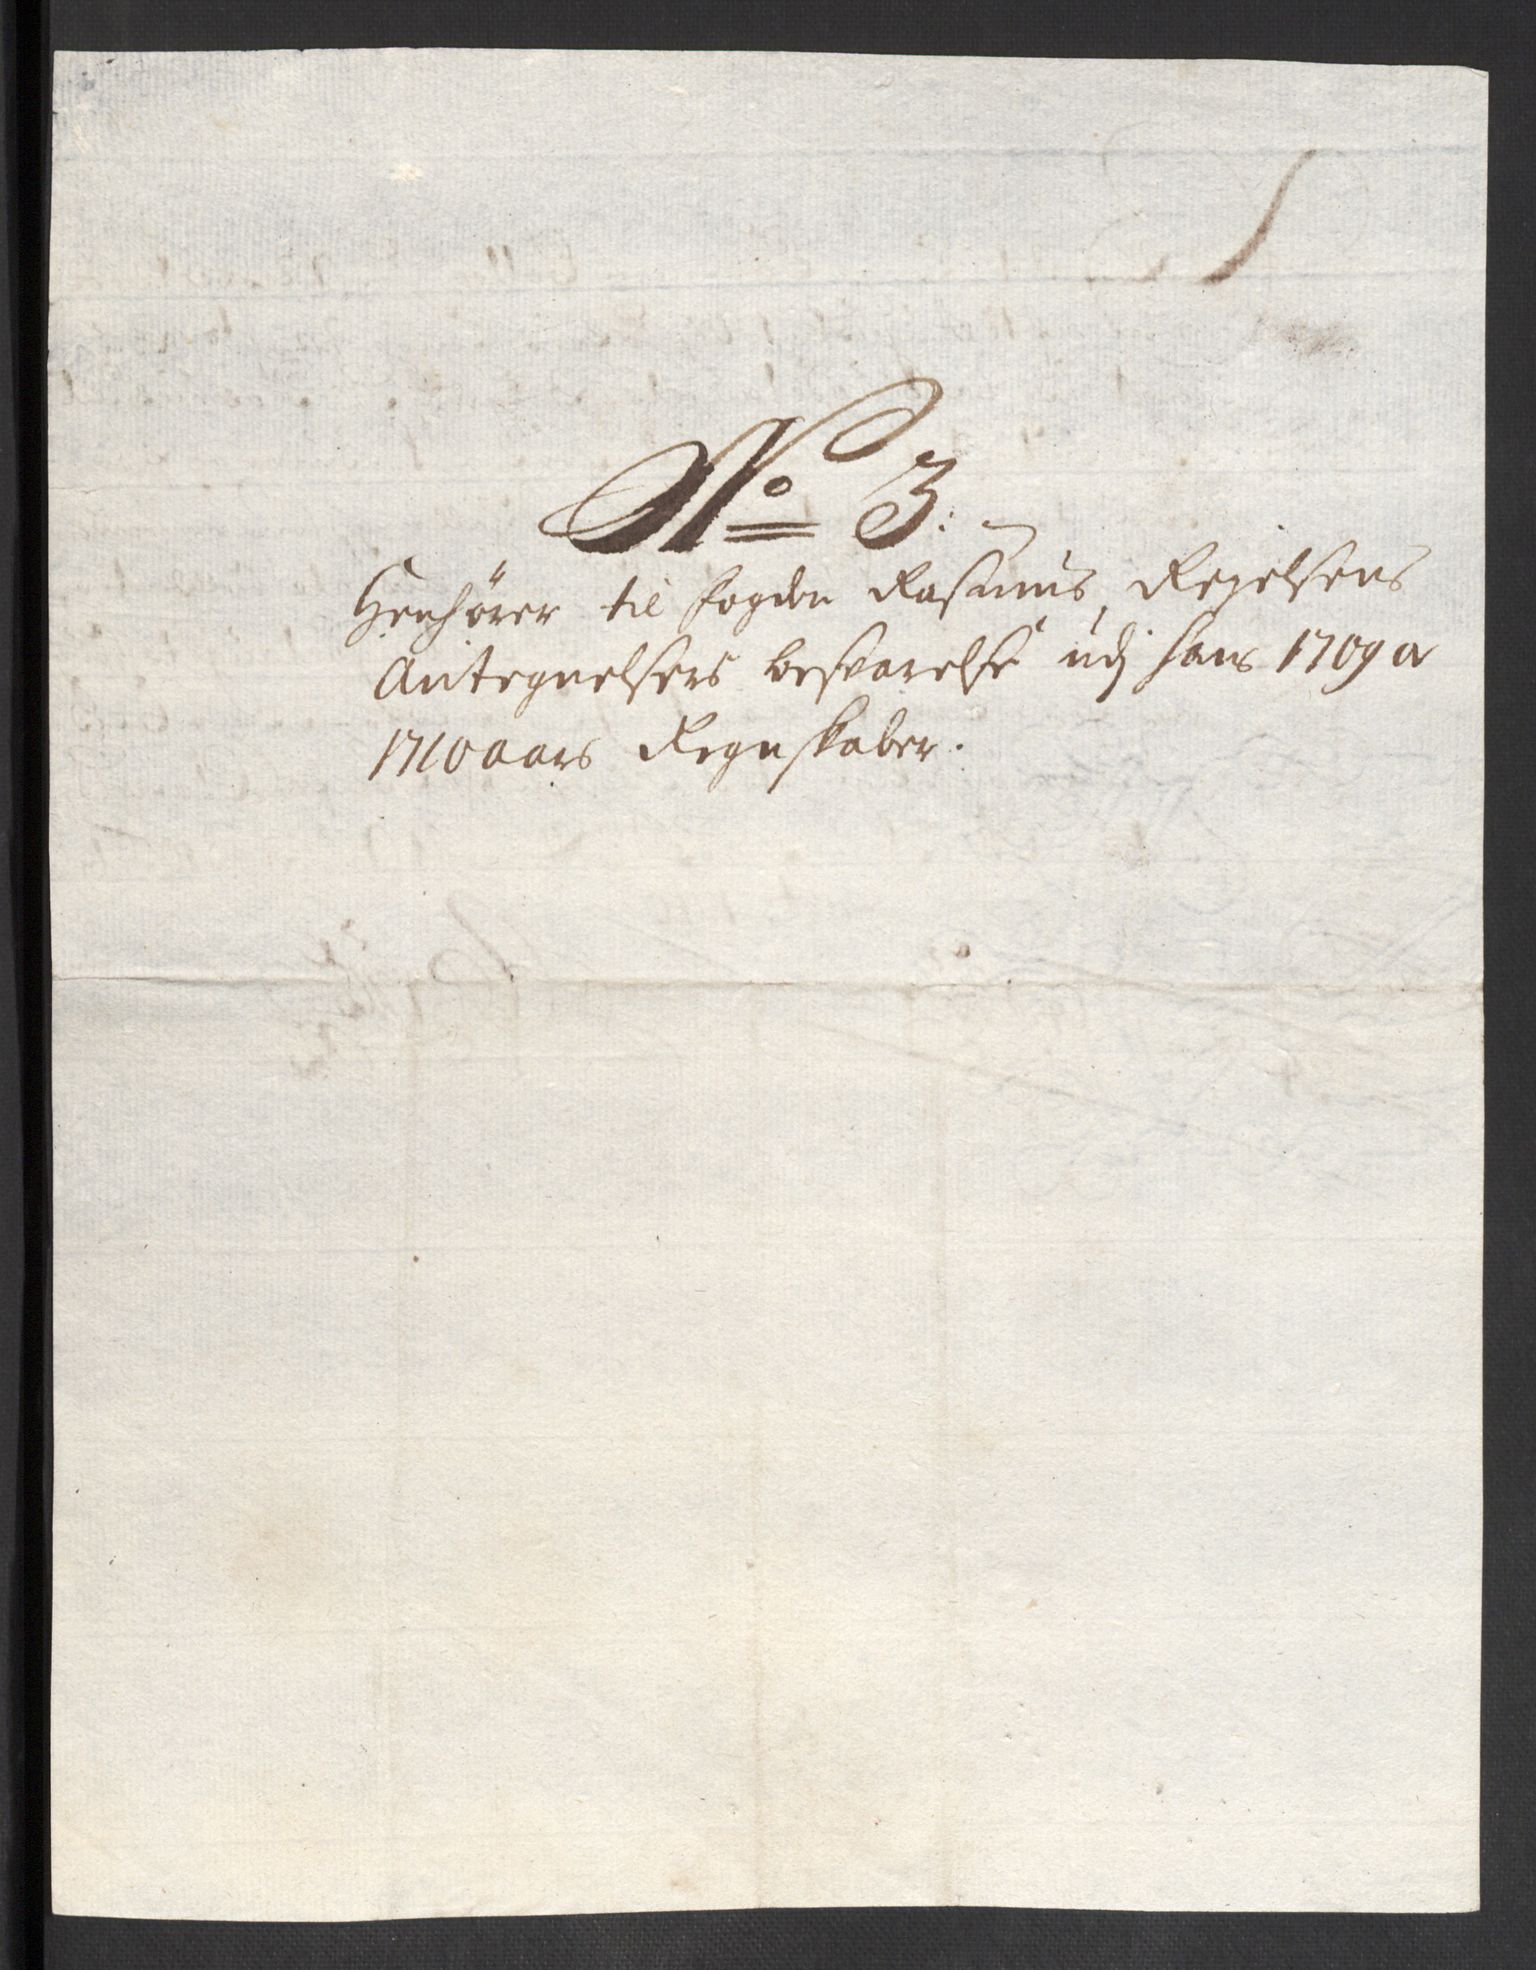 No 3.
Henhører til fogden Rasmus Regelsens
Antegnelsers besvarelse udj hans 1709 a
1710 aars Regnskaber.